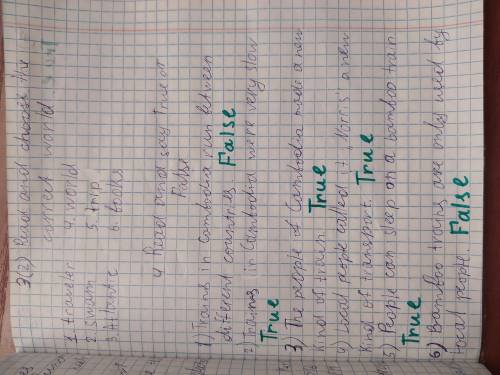 3(2) Read and choose the
correct world
1. traveler 4. world
2. Swam 5. trip
3. Atlantic 6. books
4 Read and say true or
False
1) Trains in Cambodia run between
different countries False
2) Trains in Cambodia were very slow
True
3) The people of Cambodia made a new
kind of train True
4) Local people called it "Norris" a new
kind of transport. True
5) People can sleep on a bamboo train
True
6) Bamboo trains are only used by
local people False